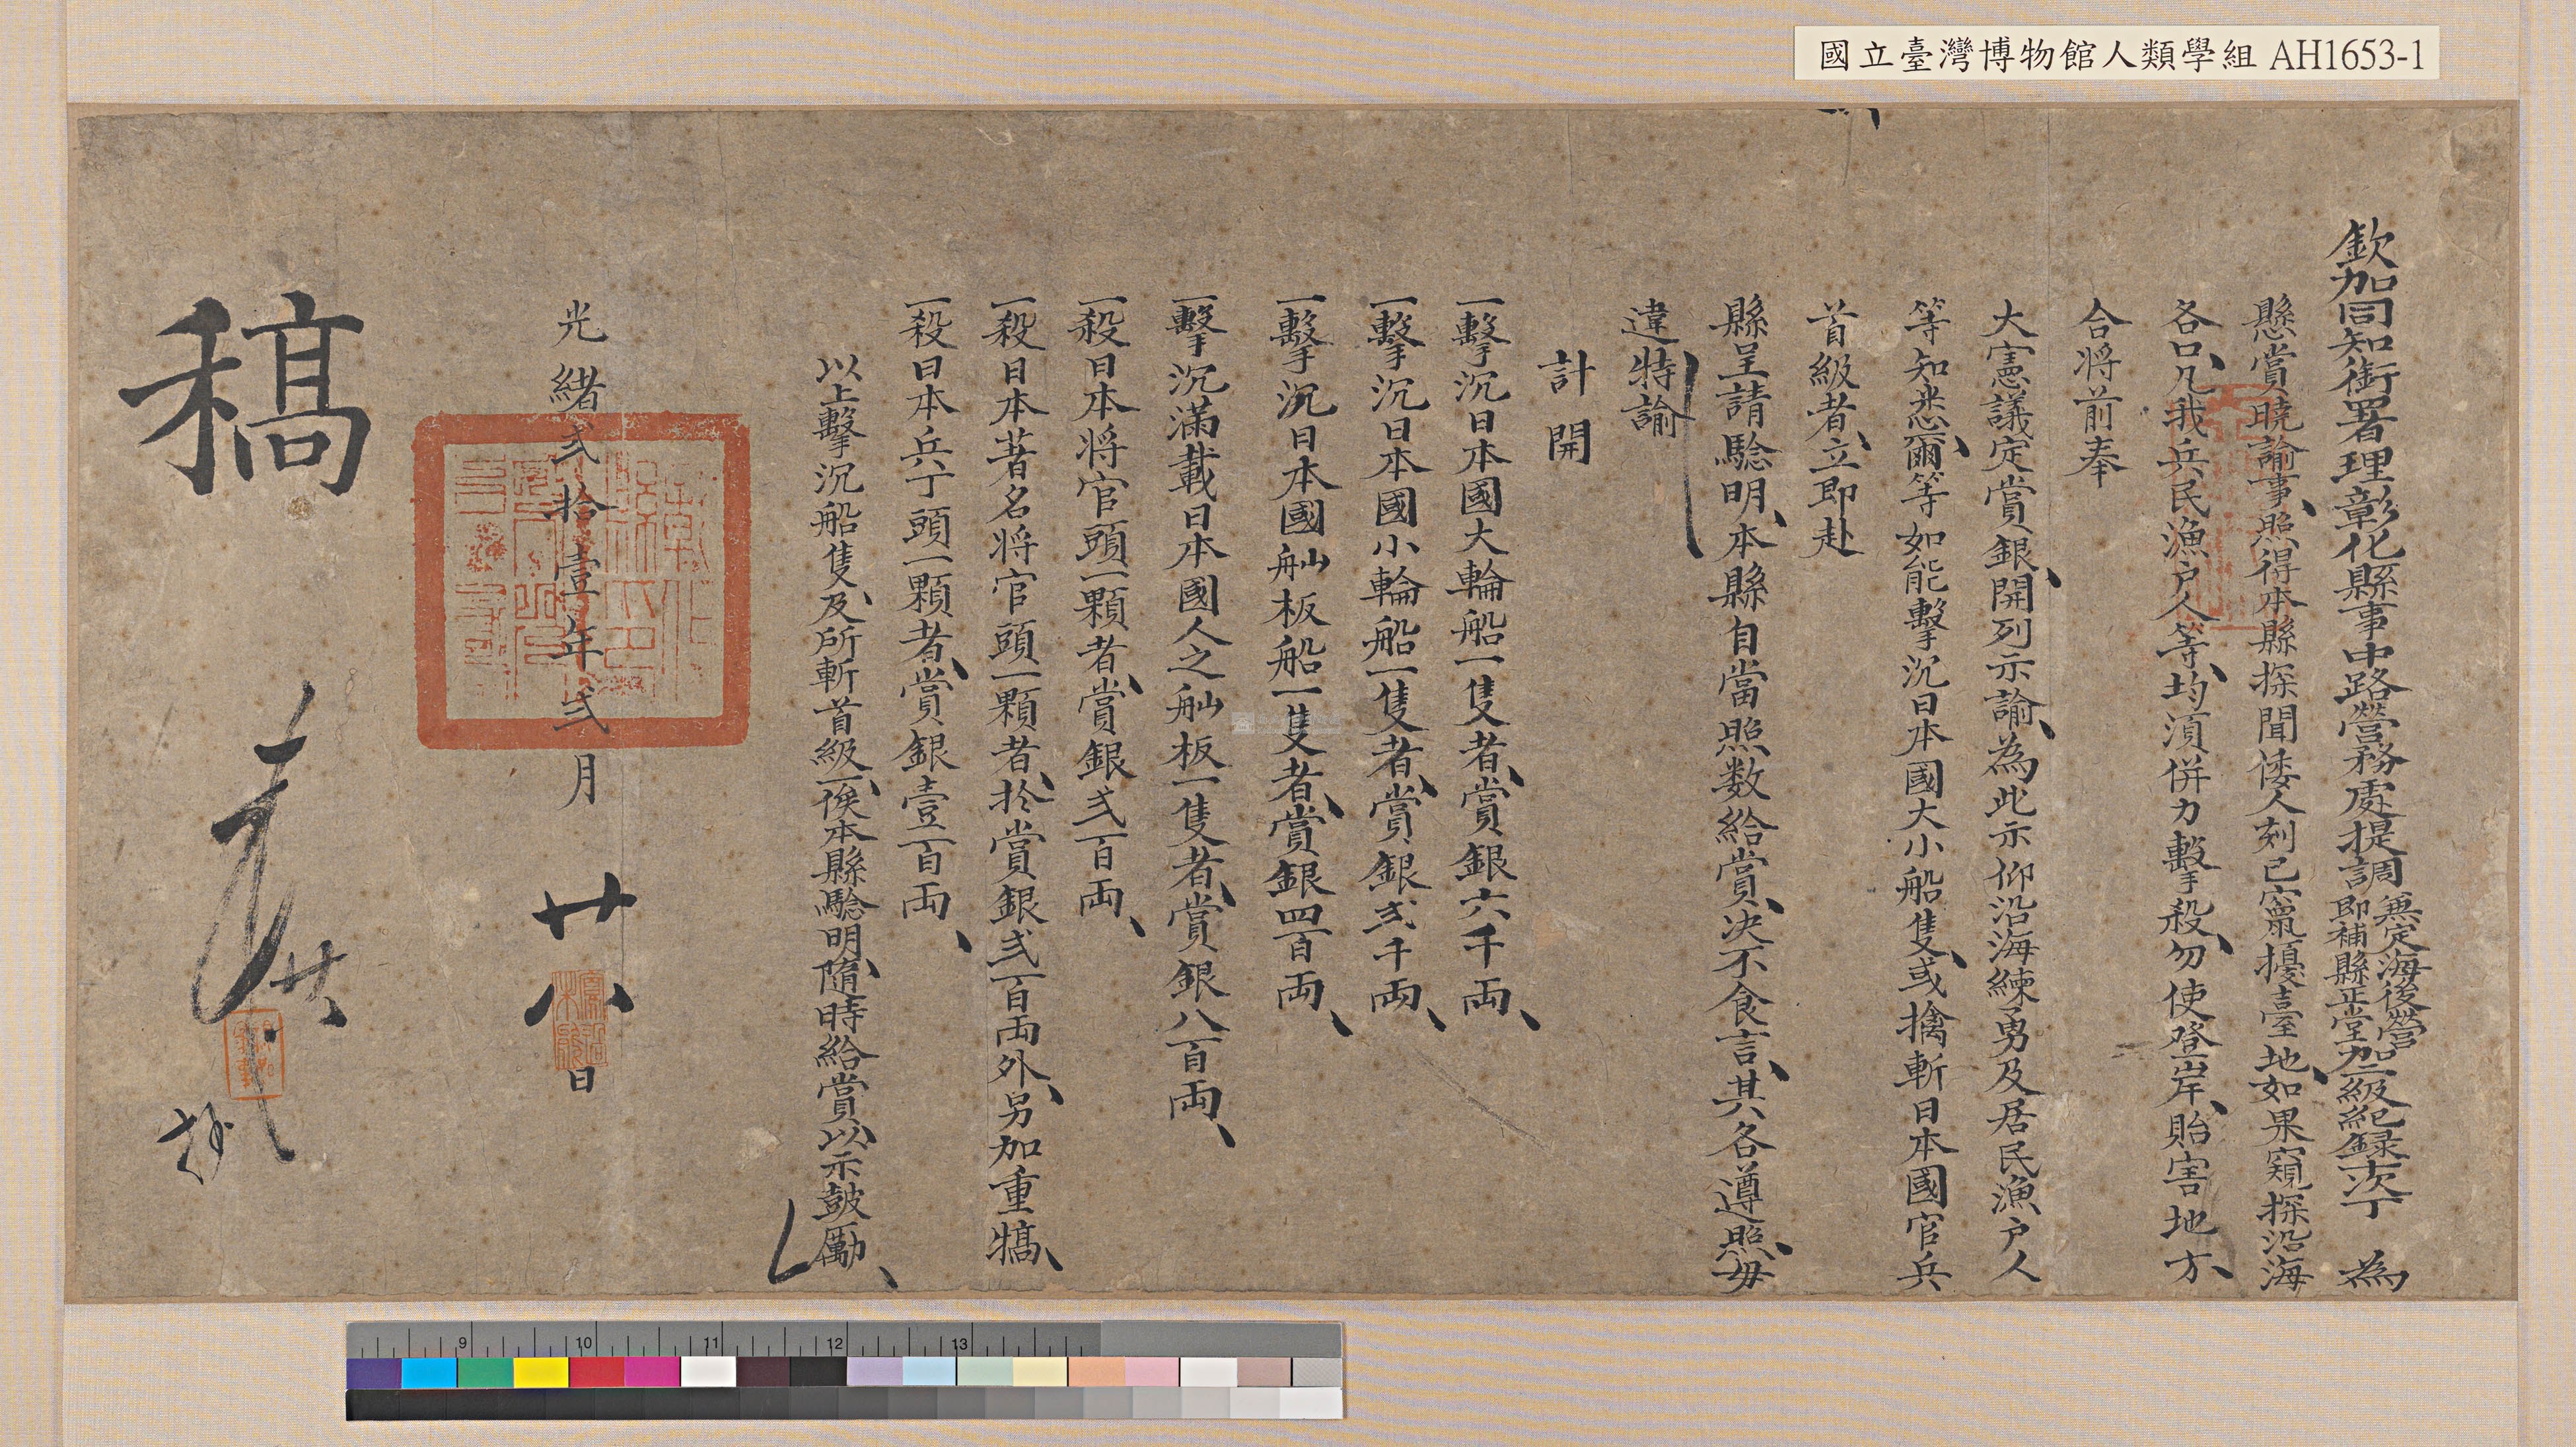 國立臺灣博物館人類學組 AH1653-1
欽加同知銜署理彰化縣事中路營務處提調兼定海後營即補縣正堂加二級紀錄十次丁 為
懸賞曉諭事、照得本縣探聞倭人刻已竄擾臺地、如果窺探沿海
各口、凡我兵民漁户人等、均須併力擊殺、勿使登岸、貽害地方、
合將前奉
大憲議定賞銀、開列示諭、為此示仰沿海練勇及居民漁户人
等知悉、爾等如能擊沉日本國大小船隻、或擒斬日本國官兵
首級者、立即赴
縣呈請驗明、本縣自當照数給賞、決不食言、其各遵照、毋
違特諭
計開
一擊沉日本國大輪船一隻者、賞銀六千両、
一擊沉日本國小輪船一隻者、賞銀弍千両、
一擊沉日本國舢板船一隻者、賞銀四百両、
一擊沉滿載日本國人之舢板一隻者、賞銀八百両、
一殺日本将官頭一顆者、賞銀弍百両、
一殺日本著名将官頭一顆者、於賞銀弍百両外、另加重犒、
一殺日本兵丁頭一顆者、賞銀壹百両、
以上擊沉船隻、及所斬首級、一俟本縣驗明、隨時給賞、以示鼓勵、
光緒弍拾壹年弍月廿八日
稿